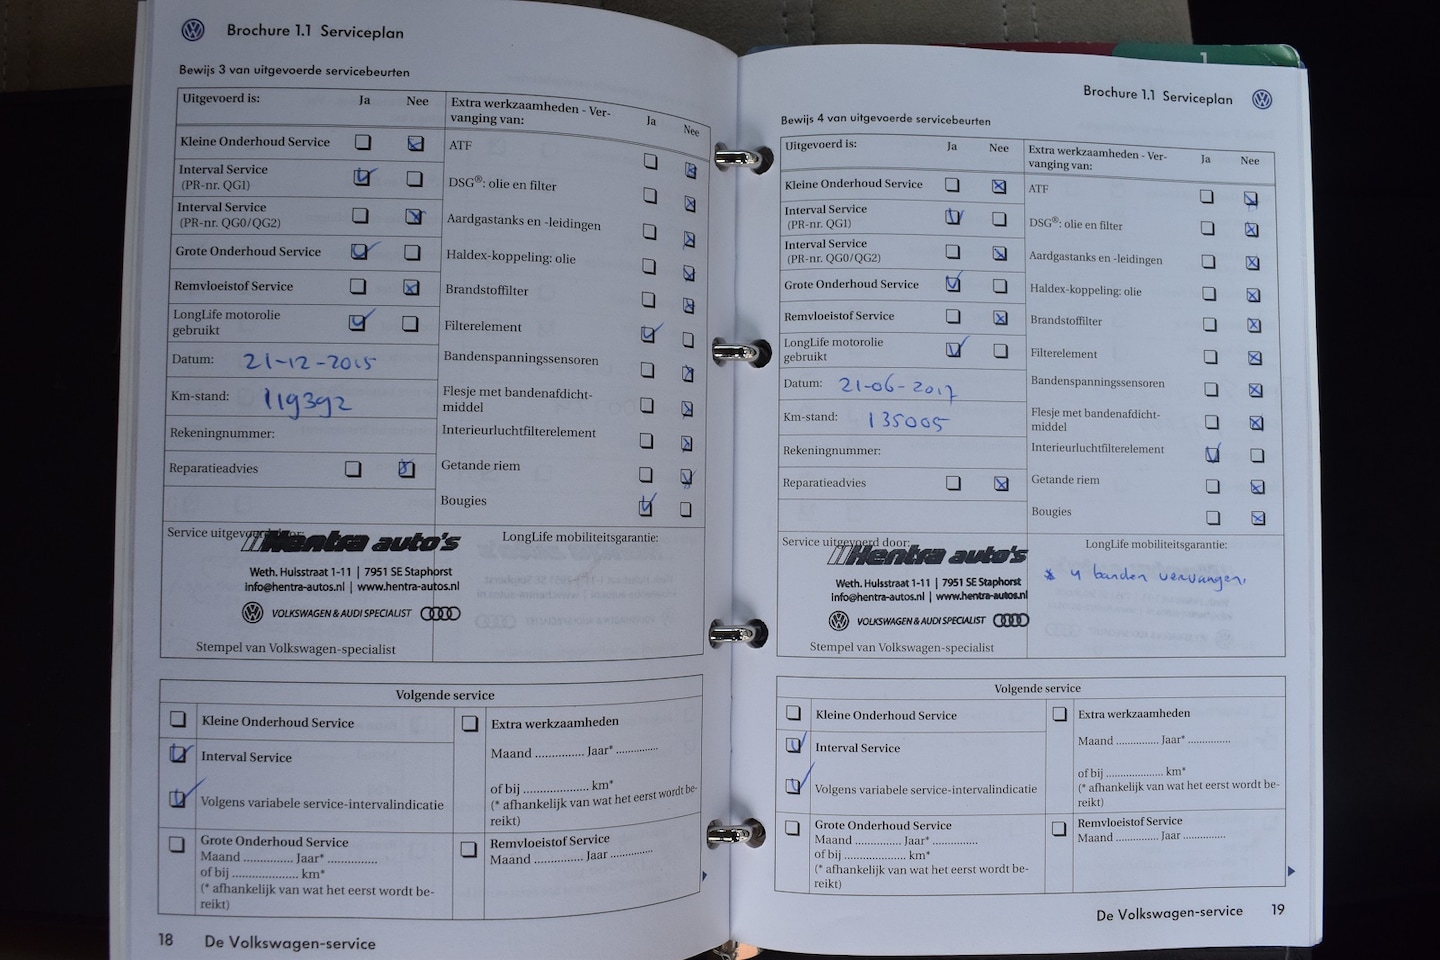 Brochure 1.1 Serviceplan
Bewijs 3 van uitgevoerde servicebeurten
Uitgevoerd is: Ja Nee
Kleine Onderhoud Service
Interval Service
(PR-nr. QG1)
Interval Service
(PR-nr. QG0/QG2)
Grote Onderhoud Service
Remvloeistof Service
LongLife motorolie
gebruikt
Datum: 21-12-2015
Km-stand: 119392
Rekeningnummer:
Reparatieadvies
Extra werkzaamheden - Ver-
vanging van: Ja Nee
ATF
DSG®: olie en filter
Aardgastanks en -leidingen
Haldex-koppeling: olie
Brandstoffilter
Filterelement
Bandenspanningssensoren
Flesje met bandenafdicht-
middel
Interieurluchtfilterelement
Getande riem
Bougies
Service uitgevoerd door:
Hentra auto's
Weth. Hulsstraat 1-11 | 7951 SE Staphorst
info@hentra-autos.nl | www.hentra-autos.nl
VOLKSWAGEN & AUDI SPECIALIST
Stempel van Volkswagen-specialist
LongLife mobiliteitsgarantie:
Volgende service
Kleine Onderhoud Service
Interval Service
Volgens variabele service-intervalindicatie
Grote Onderhoud Service
Maand .............. Jaar* ..............
of bij ................... km*
(* afhankelijk van wat het eerst wordt be-
reikt)
Extra werkzaamheden
Maand .............. Jaar* ............
of bij ................... km*
(* afhankelijk van wat het eerst wordt be-
reikt)
Remvloeistof Service
Maand .............. Jaar ............
18 De Volkswagen-service
1
Brochure 1.1 Serviceplan
Bewijs 4 van uitgevoerde servicebeurten
Uitgevoerd is: Ja Nee
Kleine Onderhoud Service
Interval Service
(PR-nr. QG1)
Interval Service
(PR-nr. QG0/QG2)
Grote Onderhoud Service
Remvloeistof Service
LongLife motorolie
gebruikt
Datum: 21-06-2017
Km-stand: 135005
Rekeningnummer:
Reparatieadvies
Extra werkzaamheden - Ver-
vanging van: Ja Nee
ATF
DSG®: olie en filter
Aardgastanks en -leidingen
Haldex-koppeling: olie
Brandstoffilter
Filterelement
Bandenspanningssensoren
Flesje met bandenafdicht-
middel
Interieurluchtfilterelement
Getande riem
Bougies
Service uitgevoerd door:
Hentra auto's
Weth. Hulsstraat 1-11 | 7951 SE Staphorst
info@hentra-autos.nl | www.hentra-autos.nl
VOLKSWAGEN & AUDI SPECIALIST
Stempel van Volkswagen-specialist
LongLife mobiliteitsgarantie:
* 4 banden vervangen.
Volgende service
Kleine Onderhoud Service
Interval Service
Volgens variabele service-intervalindicatie
Grote Onderhoud Service
Maand .............. Jaar* ..............
of bij ................... km*
(* afhankelijk van wat het eerst wordt be-
reikt)
Extra werkzaamheden
Maand .............. Jaar* ............
of bij ................... km*
(* afhankelijk van wat het eerst wordt be-
reikt)
Remvloeistof Service
Maand .............. Jaar ............
De Volkswagen-service 19